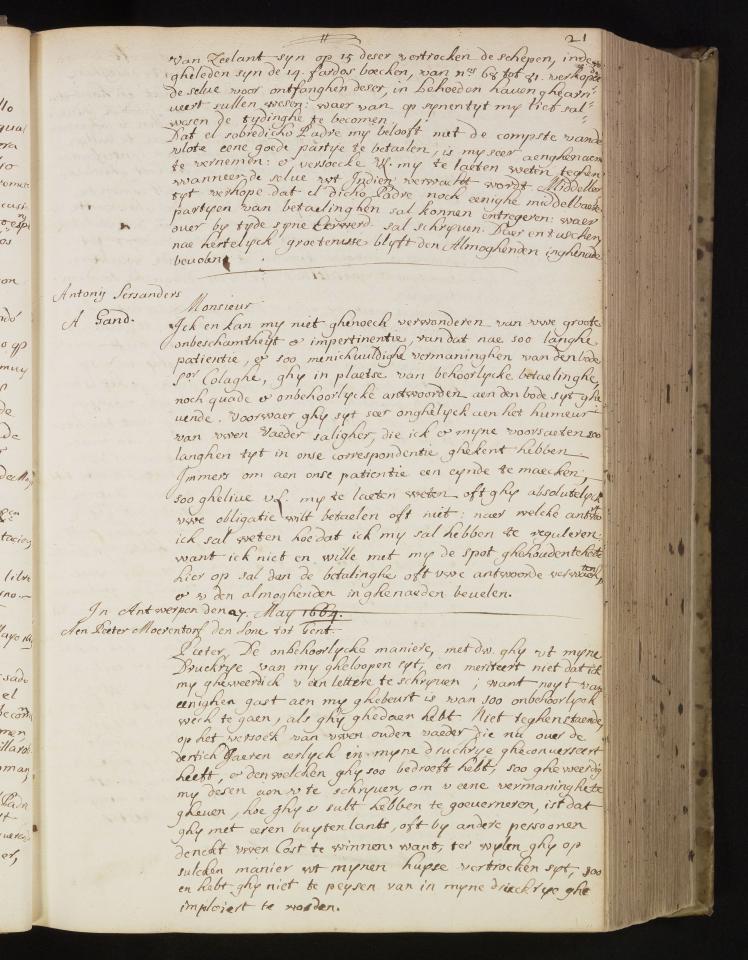 21
van Zeelant syn op 15 deser vertrocken de schepen, inde
gheleden syn de 14. fardos boecken, van nos 68 tot 81. verhope
de selve voor ontfanghen deser, in behoeden haven ghearri-
veert sullen wesen: waer van op synen tyt my lief sal
wesen de tydinghe te becomen.
Dat el sobredicho Padre my belooft met de compste vande
vlote eene goede partye te betaelen, is my seer aenghenaem
te vernemen: & versoecke UL. my te laeten weten teghen
wanneer de selve wt Indien verwacht wordt. Middeler
tyt verhope dat el dicho Padre noch eenighe middelbaere
partyen van betaelinghen sal konnen entregeren: waer
over by tyde syne Eerwerd. sal schryven. Daer entusschen
nae hertelyck groetenisse blyft den Almoghenden in ghenade
bevolen.
Antonij Sersanders
A Gand.
Monsieur
Ick en kan my niet ghenoech verwonderen van uwe groote
onbeschamtheyt & impertinentie, van dat nae soo langhe
patientie, & soo menichvuldighe vermaninghen van den bode
Sor Colaghe, ghy in plaetse van behoorlycke betaelinghe,
noch quade & onbehoorlycke antwoorden aen den bode syt ghe
vende. Voorwaer ghy syt seer onghelyck aen het humeur
van uwen Vaeder saligher, die ick & myne voorsaeten soo
langhen tyt in onse correspondentie ghekent hebben.
Immers om aen onse patientie een eynde te maecken,
soo ghelieve UL. my te laeten weten oft ghy absolutelyck
uwe obligatie wilt betaelen oft niet: naer welcke antwo
ick sal weten hoe dat ick my sal hebben te reguleren
want ick niet en wille met my de spot ghehouden te
hier op sal dan de betalinghe oft uwe antwoorde verwachten
& u den almoghenden in ghenaeden bevelen.
In Antwerpen den 27. May 1664.
Aen Peeter Moerentorf den Sone tot Gent.
Peeter, De onbehoorlycke maniere, met dw. ghy ut myne
Druckrye van my gheloopen syt, en meriteert niet dat ick
my gheweerdich u een lettere te schryven; want noyt van
eenighen gast aen my ghebeurt is van soo onbehoorlyck
werck te gaen, als ghy ghedaen hebt. Niet teghenstaende,
op het versoek van uwen ouden vaeder die nu over de
dertich Jaeren eerlyck in myne druckrye gheconverseert
heeft, & den welcken ghy soo bedroeft hebt, soo gheweerdig
my desen aen u te schryven, om u eene vermaninghe te
gheven, hoe ghy u sult hebben te gouverneren, ist dat
ghy met eeren buyten lants, oft by andere persoonen
denckt uwen Cost te winnen: want, ter wylen ghy op
sulcken manier wt mynen huyse vertrocken syt, soo
en hebt ghy niet te peysen van in myne druckrye ghe
imploiert te worden.